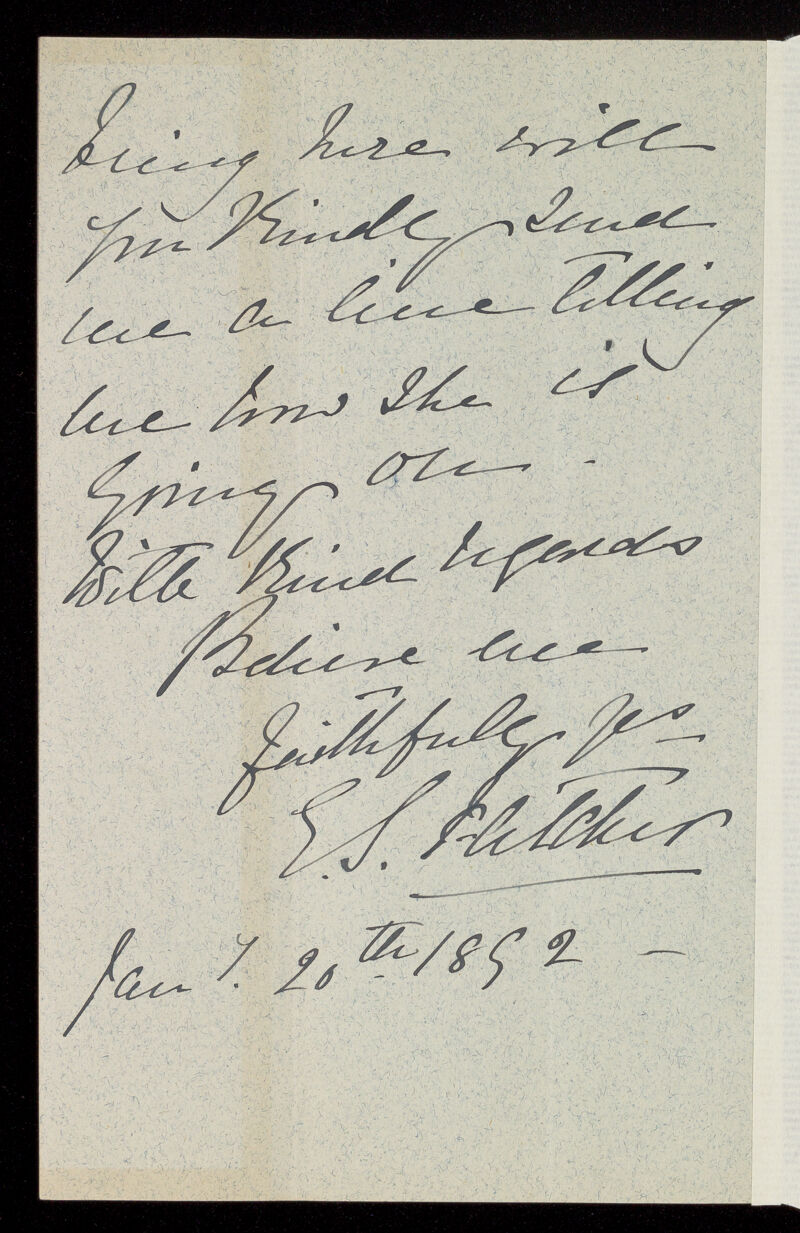 being here will
you kindly send
me a line telling
me how she is
going on.
With kind regards
Believe me
faithfully yrs
E. S. Fletcher
Jany. 20th 1892 –